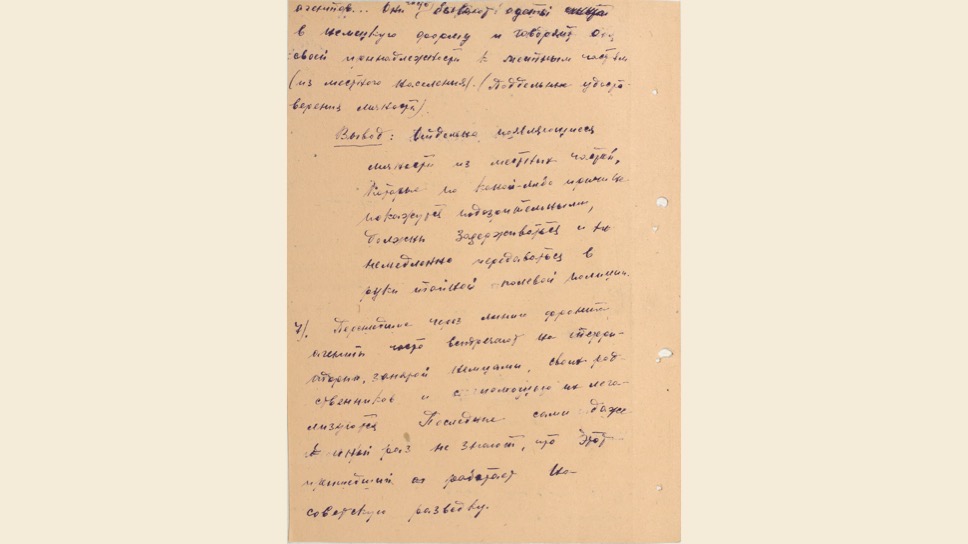 агентов... Они часто бывают одеты
в немецкую форму и говорят о
своей принадлежности к местным частям
(из местного населения). (Поддельные удосто-
верения личности).
Вывод: Отдельно появляющиеся
личности из местных частей,
которые по какой-либо причине
покажутся подозрительными,
должны задерживаться и
немедленно передаваться в
руки тайной полевой полиции.
7). Перешедшие через линию фронта
агенты часто встречают на терри-
тории, занятой немцами, своих род-
ственников и с помощью их лега-
лизуются. Последние сами даже
в иной раз не знают, что этот
пришедший работает на
советскую разведку.